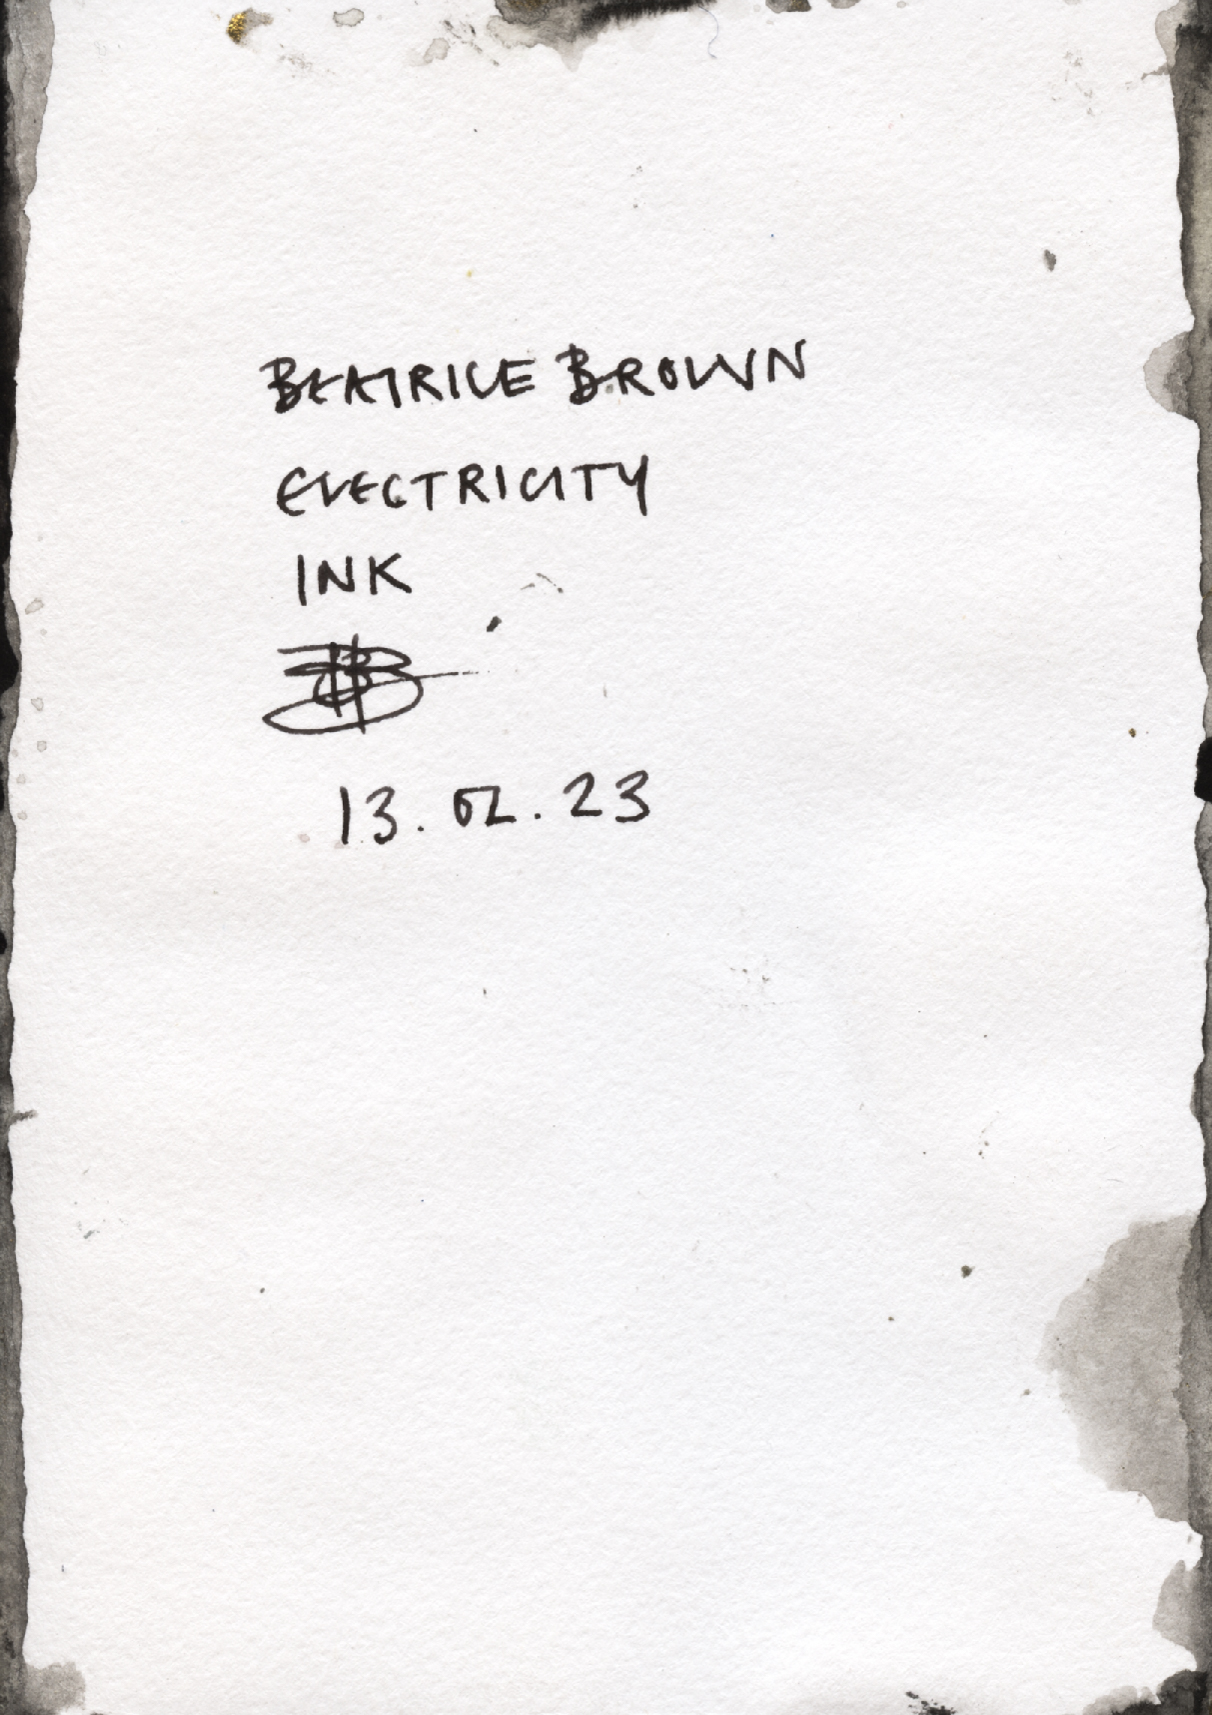 BEATRICE BROWN
ELECTRICITY
INK
13.02.23